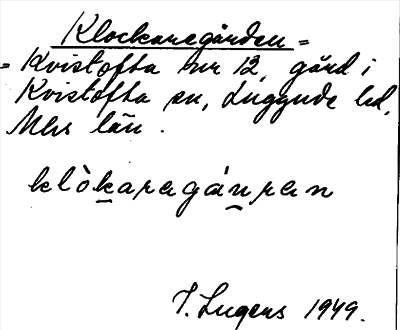 Klockaregården =
= Kvistofta nr 12, gård i
Kvistofta sn, Luggude hd,
Mhs län.
klòkaragánran
I. Lugens 1949.